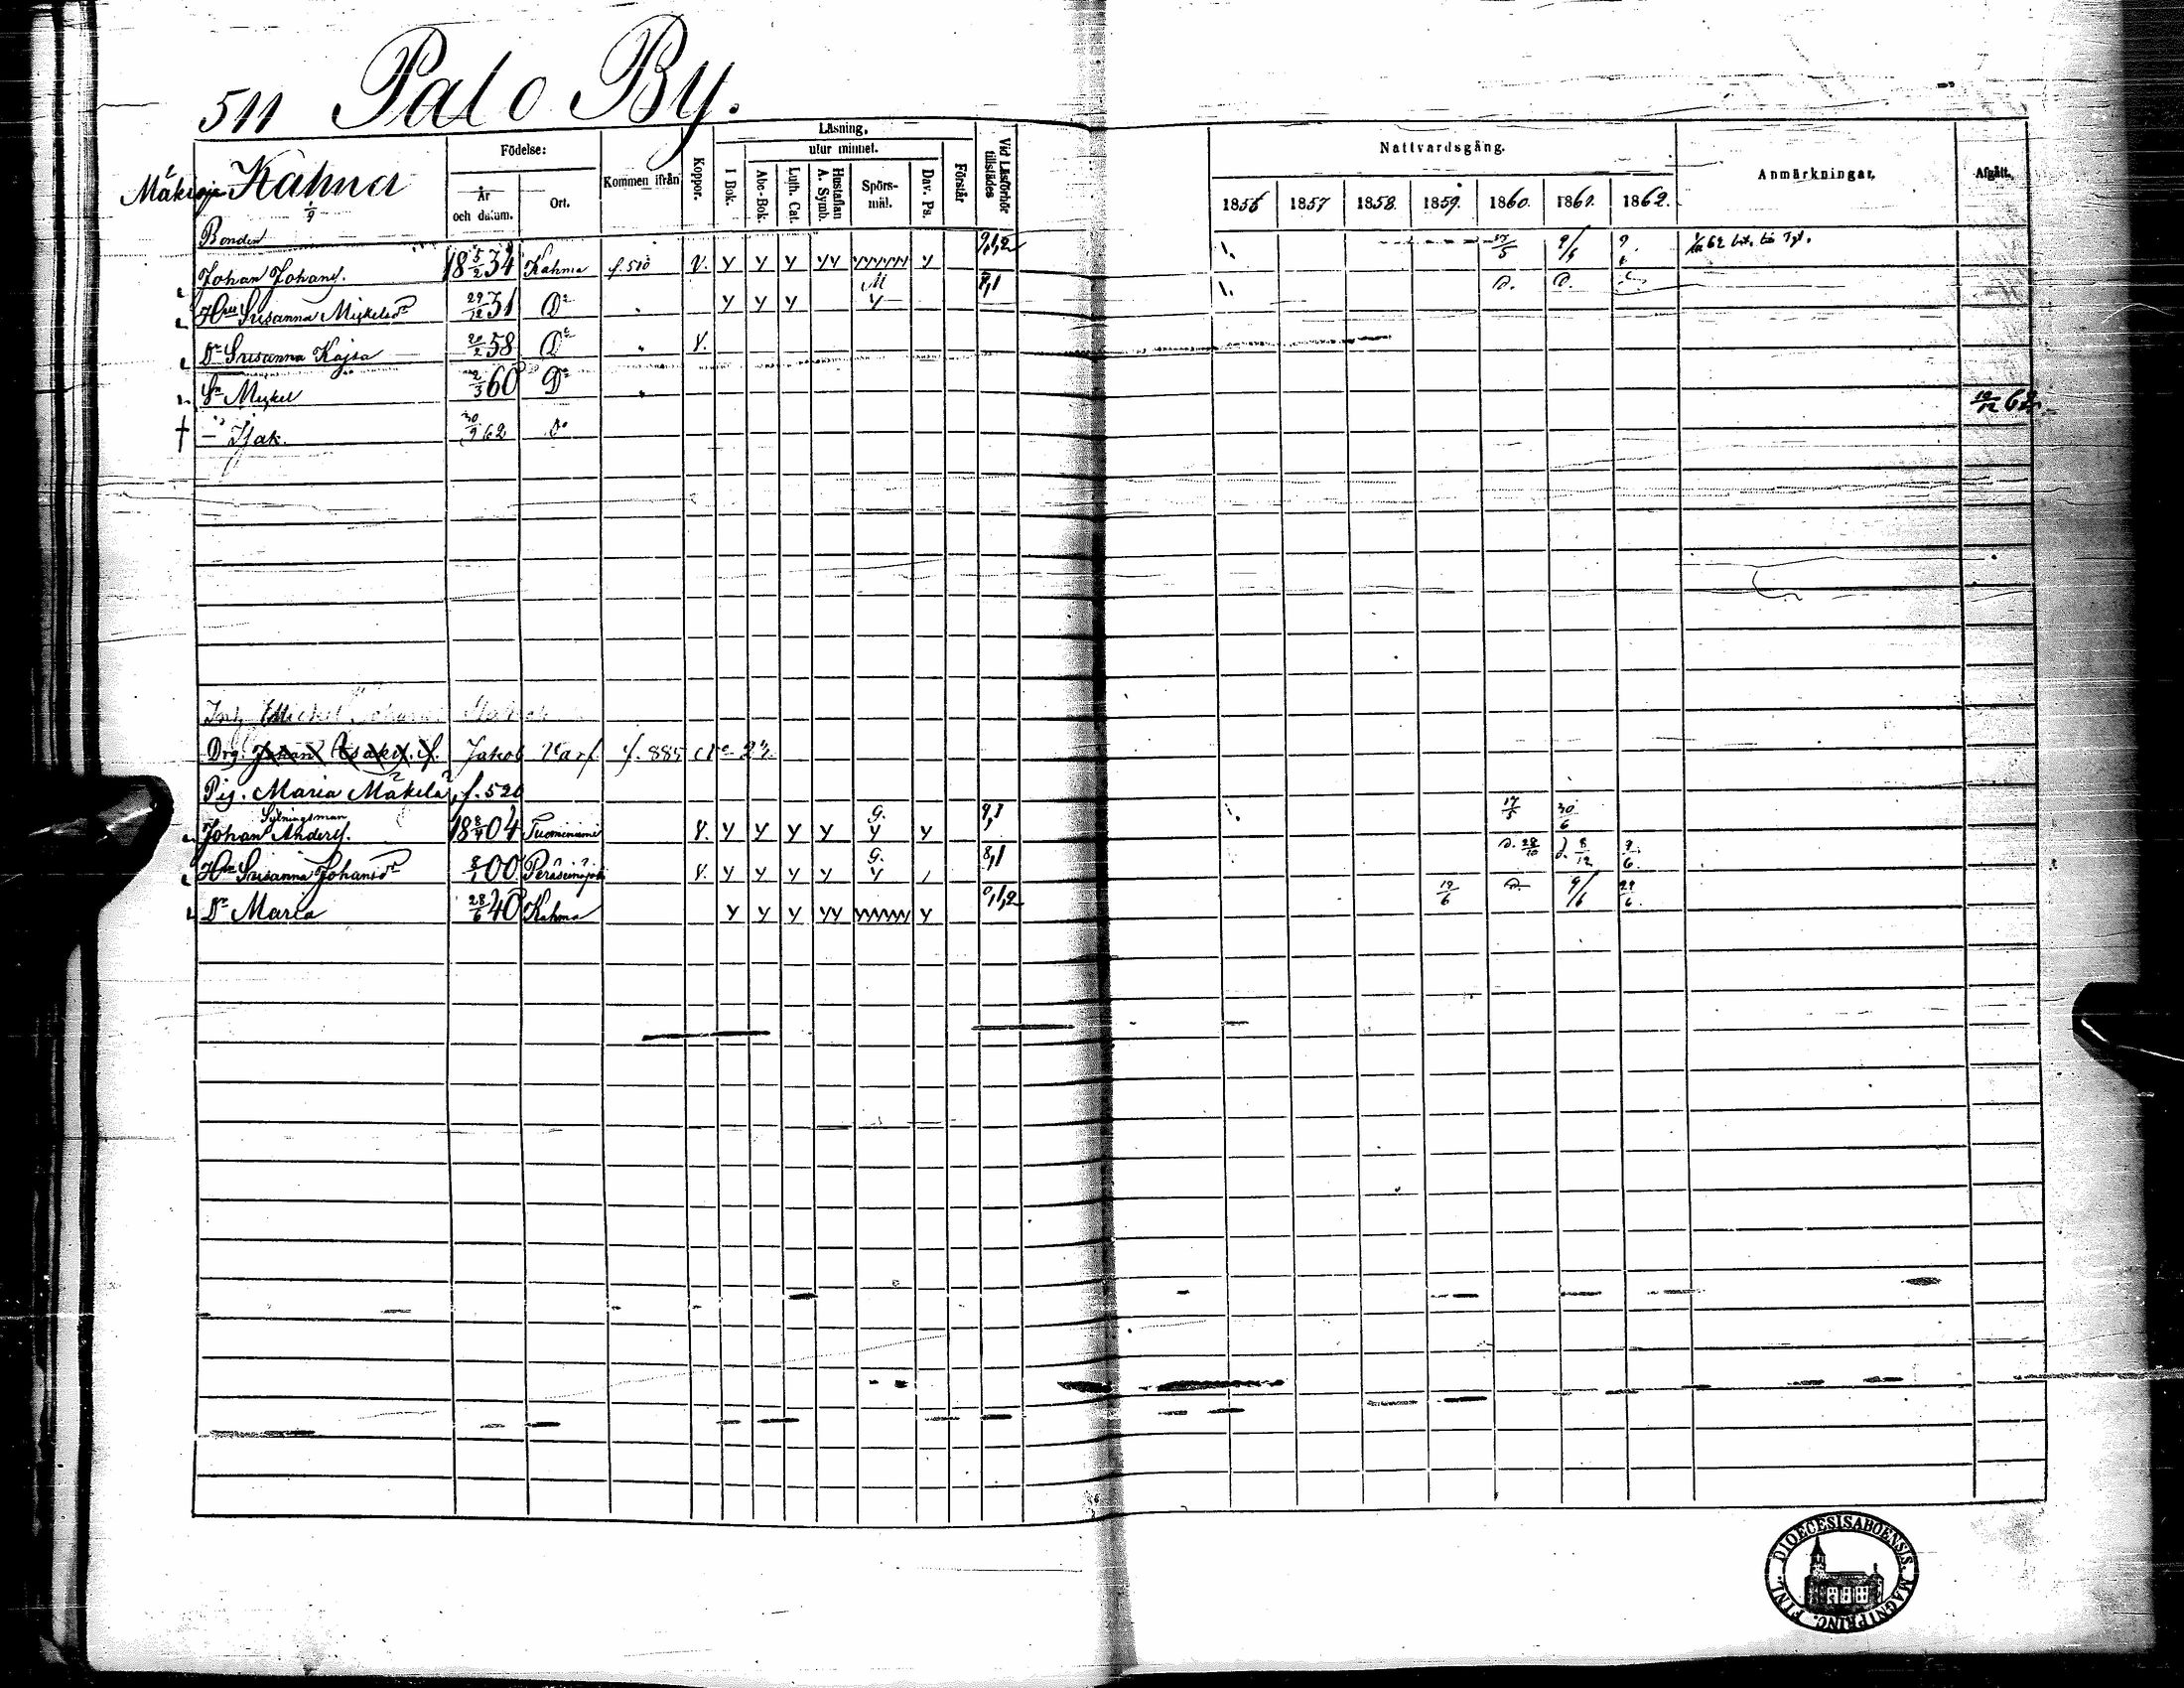 511 Palo By.
Mäkioja Kahma 1/9
Födelse:
År och datum.
Ort.
Kommen ifrån
Koppor.
Läsning.
I Bok.
utur minnet.
Abc-Bok.
Luth. Cat.
Hustaflan A. Symb.
Spörs-mål.
Dav. Ps.
Förstår
Vid Läsförhör tillstädes
Nattvardsgång.
1856 1857 1858. 1859. 1860. 1861. 1862.
Anmärkningar.
Afgått.
Bonden
Johan Johans. 18 5/2 34 Kahma f. 510 V. y y y yy yyyyyy y 9,1,2 17/5 9/6
Hru Susanna Mickelsdr 29/12 31 Do " y y y M y 8,1 D. D.
Dr Susanna Kajsa 20/2 58 Do " V.
Sn Mickel 2/3 60 Do "
† — Isak. 30/9 62 Do 10/12 62.
Drg. Johan Isaks. Jakob f. 885 No 24
Pig. Maria Mäkelä, f. 520
Sytningsman
Johan Anders. 18 8/4 04 Tuominiemi V. y y y y G. y y 9,1 17/5 30/6
Hru Susanna Johansdr 8/1 00 Peräseinäjoki V. y y y y G. y 8,1 D. 28/10 D. 8/12 9/6.
Dr Maria 28/6 40 Kahma y y y yy yyyyyy y 9,1,2 19/6 D. 9/6 29/6.
DIOECESIS ABOENSIS. MAGNI PRINC. FINL.